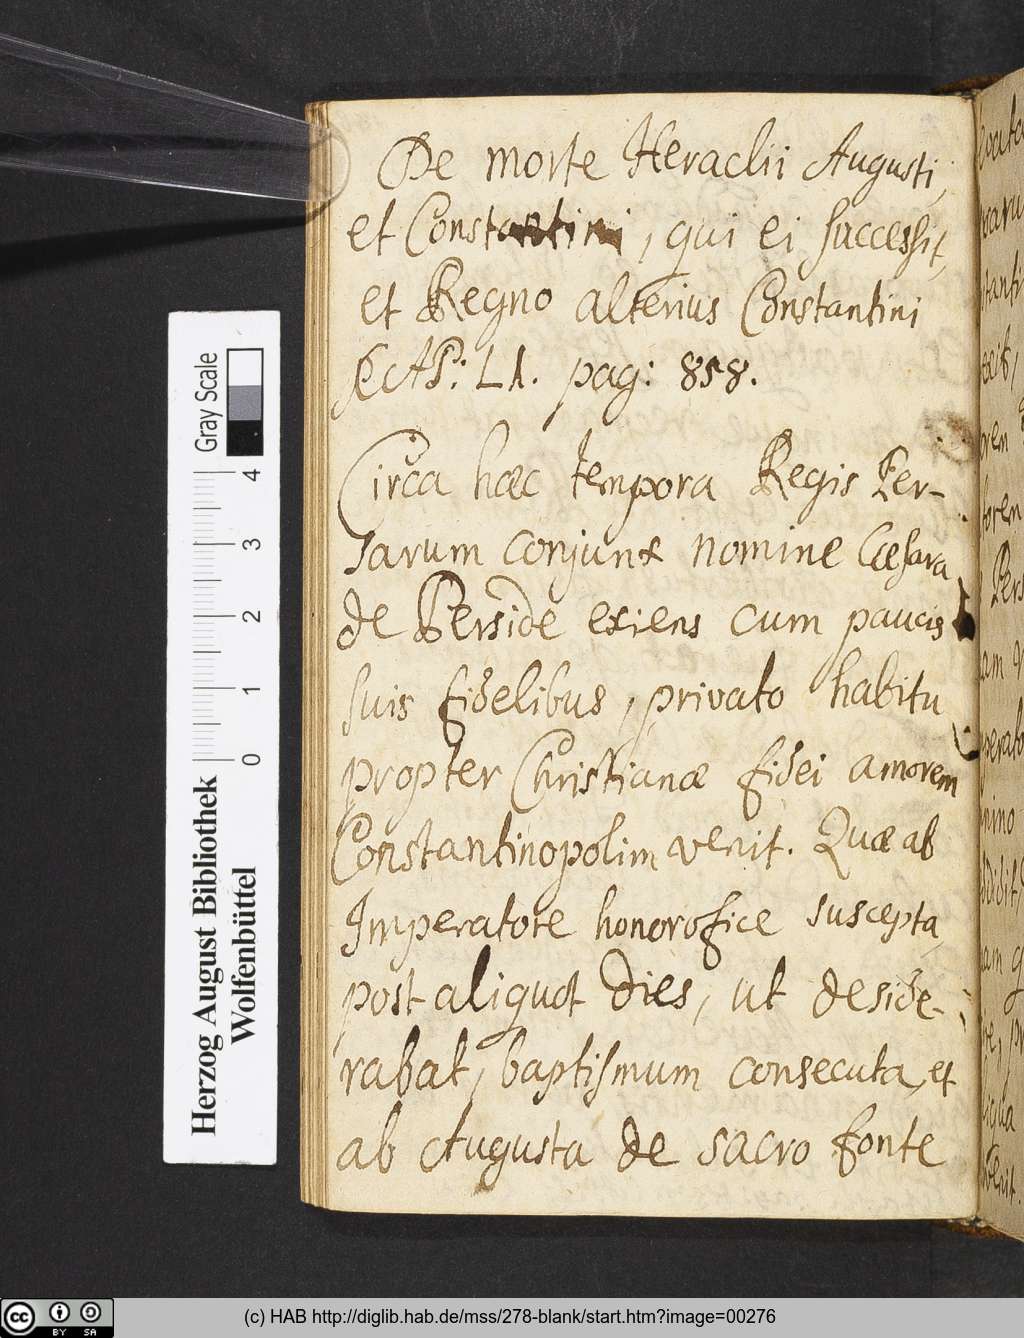 De morte Heraclii Augusti,
et Constantini, qui ei successit,
et Regno alterius Constantini
&c. AP: LI. pag: 858.
Circa hæc tempora Regis Per-
sarum conjunx nomine Cæsara
de Perside exiens cum paucis
suis fidelibus, privato habitu
propter Christianæ fidei amorem
Constantinopolim venit. Quæ ab
Imperatore honorofice suscepta,
post aliquot dies, ut deside-
rabat, baptismum consecuta, et
ab Augusta de sacro fonte
Herzog August Bibliothek
Wolfenbüttel
Gray Scale
0 1 2 3 4
cc BY SA
(c) HAB http://diglib.hab.de/mss/278-blank/start.htm?image=00276